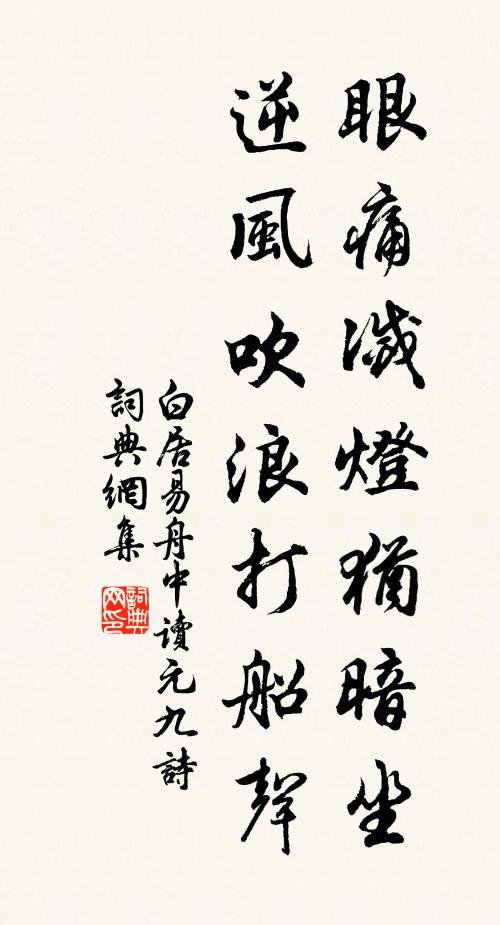 眼痛滅燈猶暗坐
逆風吹浪打船聲
白居易舟中讀元九詩
詞典網集
詞典网印